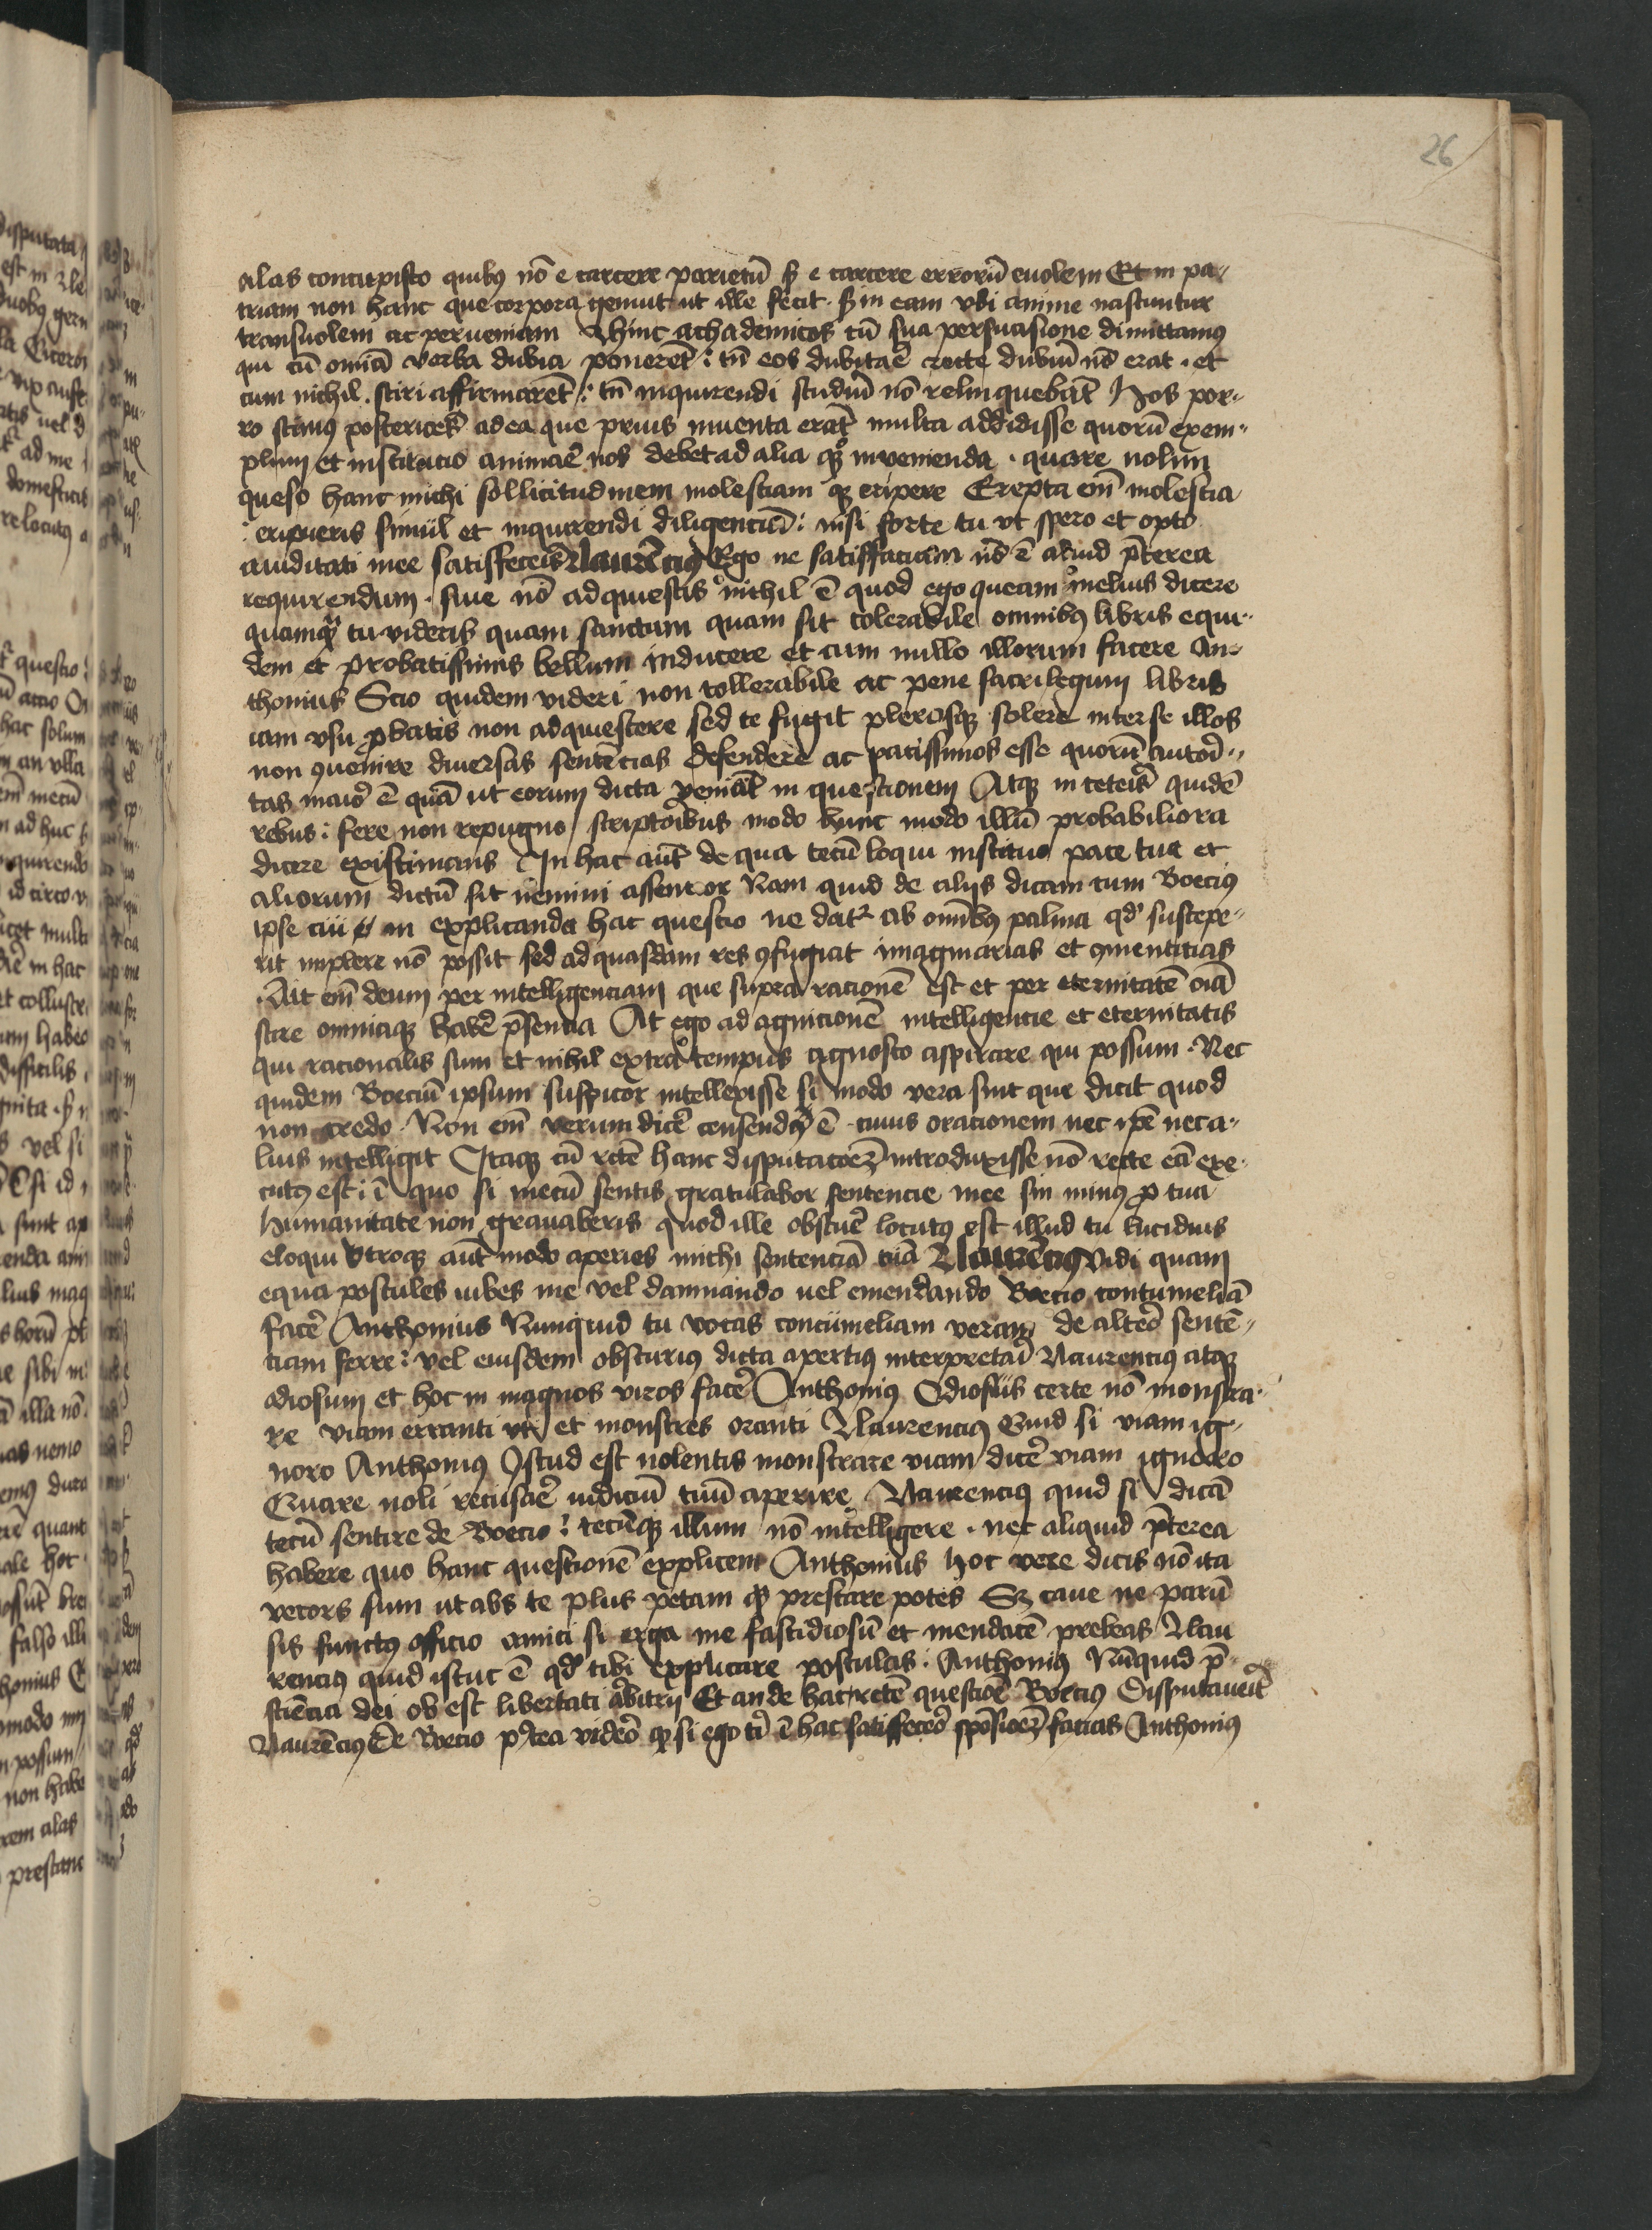 26
alas concupisco quibꝰ nō e carcere parietū sꝫ e carcere errorū euolem Et in pa-
triam non hanc que corpora gemut ut ille fecit · sꝫ in eam vbi anime nascuntur
transuolem ac perueniam hinc achademicos cū sua persuasione dimittamꝰ
qui cū omīa verba dubia ponerēt : tn̄ eos dubitaē recte dubiū nō erat · et
cum nichil sciri affirmarēt : tn̄ inquirendi studiū nō relinquebāt Nos por-
ro scimꝰ ad ea que prius inuenta erāt multa addidisse quorū exem-
plum et institucio animaē nos debet ad alia qꝫ inuenienda · quare nolim
queso hanc michi sollicitudinem molestiam qꝫ eripere Erepta em̄ molestia
eripueris simul et inquirendi diligenciā : nisi forte tu vt spero et opto
auiditati mee satisfeceris Laurēciꝰ Ego ne satisfaciam nō ē aliud p̄terea
requirendum · siue nō adquiescis nichil ē quod ego queam melius dicere
quamqꝫ tu videris quam sanctum quam sit tolerabile omnibꝰ libris equi-
dem et probatissimis bellum inducere et cum nullo illorum facere An-
thonius Scio quidem videri non tollerabile ac pene sacrilegum libris
iam vsu ꝓbatis non adquiescere sed te fugit plerosqꝫ solere inter se illos
non ꝯuenire diuersas sentēcias defendere ac patissimos esse quorū autori-
tas maior ē quā ut eorum dicta veniāt in questionem Atqꝫ in ceteris quidē
rebus : fere non repugno scriptoribus modo hunc modo illū probabiliora
dicere existimans In hac aūt de qua tecū loqui instituo pace tua et
aliorum dictū sit nemini assentior Nam quid de alijs dicam cum Boeciꝰ
ipse cui in explicanda hac questio ne datr ab omībꝰ palma qd suscepe-
rit implere nō possit sed ad quasdam res ꝯfugiat imaginarias et ꝯmenticias
Ait em̄ deum per intelligenciam que supra racionē est et per eternitatē oīa
scire omniaqꝫ habē p̄sencia At ego ad agnicionē intelligencie et eternitatis
qui racionalis sum et nihil extra tempus agnosco aspirare qui possum · Nec
quidem Boeciū ipsum suspicor intellexisse si modo vera sint que dicit quod
non credo · Non em̄ verum dicē censendꝰ ē · cuius oracionem nec ipē nec a-
lius intelligit Itaqꝫ cū rctē hanc disputacoēꝫ introduxisse nō recte eā exe-
cutꝰ est : ī quo si mecū sentis gratulabor sentencie mee sin minꝰ ꝓ tua
humanitate non grauaberis quod ille obscuē locutꝰ est illud tu lucidius
eloqui vtroqꝫ aūt modo aperies michi sentenciā tuā Laurēciꝰ Vidi quam
equa postules iubes me vel damnando uel emendando Boecio contumeliā
facē Anthonius Nunquid tu vocas contumeliam veram de alteo sentē-
ciam ferre : vel eiusdem obscuriꝰ dicta apertiꝰ interpretari Laurenciꝰ atqꝫ
odiosum et hoc in magnos viros facē Anthoniꝰ Odiosius certe nō monstra-
re viam erranti vt et monstres oranti Laurenciꝰ Quid si viam ig-
noro Anthoniꝰ Istud est nolentis monstrare viam dicē viam ignoro
Quare noli recusaē iudiciū tuū aperire Laurenciꝰ quid si dicā
tecū sentire de Boecio : tecūqꝫ illum nō intelligere · nec aliquid p̄terea
habere quo hanc questionē explicem Anthonius Hoc vere dicis nō ita
vecors sum ut abs te plus petam qꝫ prestare potes Sꝫ caue ne parū
sis functꝰ officio amici si erga me fastidiosū et mendacē prebeas Lau
renciꝰ quid istuc ē qd tibi explicare postulas · Anthoniꝰ Nūquid p̄-
sciēcia dei ob est libertati arbitrij Et an de hac rctē questiōe Boeciꝰ disputauerit
Laurēciꝰ De Boecio p̄tea videō qꝫ si ego tī ī hac satisfecō spōsioēꝫ facias Anthoniꝰ